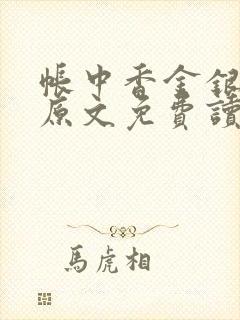 帳中香金銀
原文免費讀
馬虎相